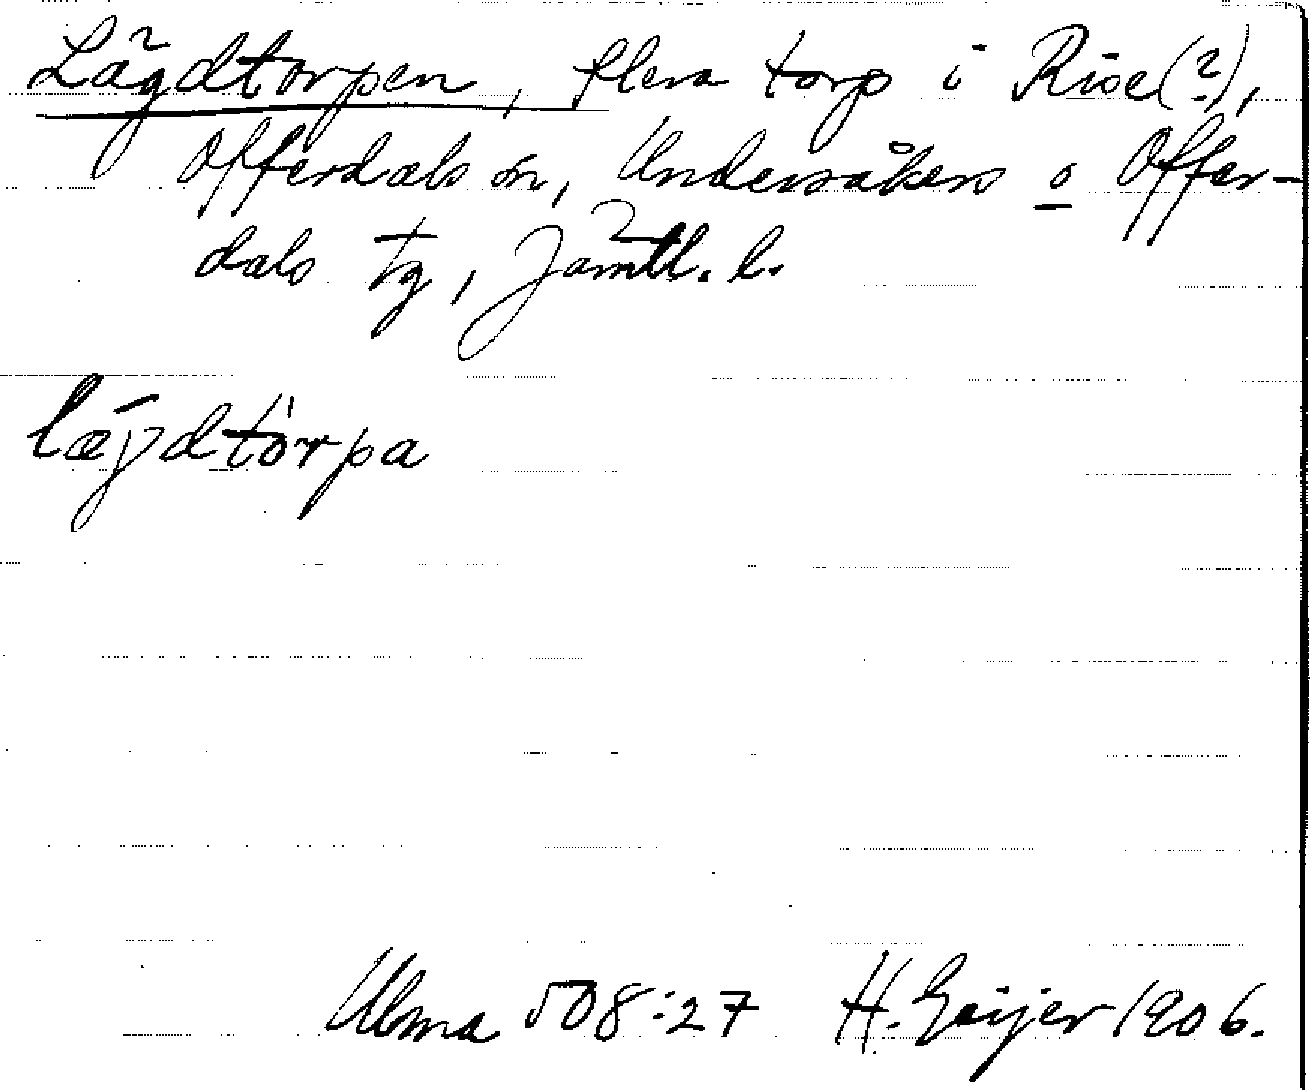 Lägdtorpen, flera torp i Rise(?),
Offerdals sn, Undersåkers o Offer-
dals tg, Jämtl. l.
læɡdtòrpa
Ulma 508:27 H. Geijer 1906.